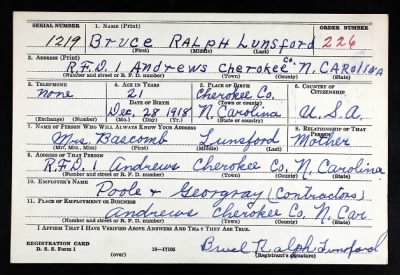 SERIAL NUMBER 1. NAME (Print) ORDER NUMBER
1219 BRUCE RALPH LUNSFORD 226
(First) (Middle) (Last)
2. ADDRESS (Print)
R.F.D. 1 ANDREWS CHEROKEE Co. N. CAROLINA
(Number and street or R. F. D. number) (Town) (County) (State)
3. TELEPHONE 4. AGE IN YEARS 5. PLACE OF BIRTH 6. COUNTRY OF CITIZENSHIP
None 21 Cherokee Co.
DATE OF BIRTH (Town or county)
Dec. 28 1918 N. Carolina U.S.A.
(Exchange) (Number) (Mo.) (Day) (Yr.) (State or country)
7. NAME OF PERSON WHO WILL ALWAYS KNOW YOUR ADDRESS 8. RELATIONSHIP OF THAT PERSON
Mrs. Bascomb Lunsford Mother
(Mr., Mrs., Miss) (First) (Middle) (Last)
9. ADDRESS OF THAT PERSON
R.F.D. 1 Andrews Cherokee Co. N. Carolina
(Number and street or R. F. D. number) (Town) (County) (State)
10. EMPLOYER'S NAME
Poole + (Contractors)
11. PLACE OF EMPLOYMENT OR BUSINESS
Andrews Cherokee Co. N. Car.
(Number and street or R. F. D. number) (Town) (County) (State)
I AFFIRM THAT I HAVE VERIFIED ABOVE ANSWERS AND THAT THEY ARE TRUE.
REGISTRATION CARD
D. S. S. Form 1 16—17105 Bruce Ralph Lunsford
(over) (Registrant's signature)